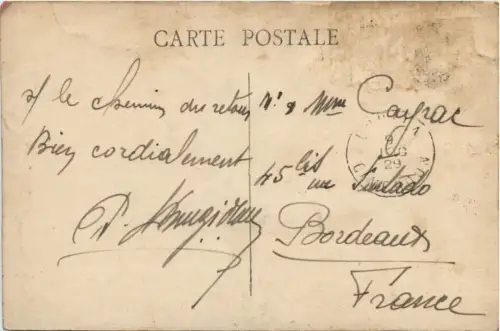 CARTE POSTALE
s/ le chemin du retour
Bien cordialement
Mr & Mme Cayrac
45 bis
Bordeaux
France